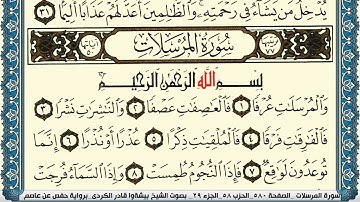 يُدْخِلُ مَن يَشَآءُ فِى رَحْمَتِهِۦ ۚ وَٱلظَّٰلِمِينَ أَعَدَّ لَهُمْ عَذَابًا أَلِيمًۢا ٣١
سُورَةُ الْمُرْسَلَاتِ
بِسْمِ ٱللَّهِ ٱلرَّحْمَٰنِ ٱلرَّحِيمِ
وَٱلْمُرْسَلَٰتِ عُرْفًا ١ فَٱلْعَٰصِفَٰتِ عَصْفًا ٢ وَٱلنَّٰشِرَٰتِ نَشْرًا ٣
فَٱلْفَٰرِقَٰتِ فَرْقًا ٤ فَٱلْمُلْقِيَٰتِ ذِكْرًا ٥ عُذْرًا أَوْ نُذْرًا ٦ إِنَّمَا
تُوعَدُونَ لَوَٰقِعٌ ٧ فَإِذَا ٱلنُّجُومُ طُمِسَتْ ٨ وَإِذَا ٱلسَّمَآءُ فُرِجَتْ
سورة المرسلات _ الصفحة ٥٨٠ _ الحزب ٥٨ _ الجزء ٢٩ _ بصوت الشيخ بيشةوا قادر الكردي _ برواية حفص عن عاصم